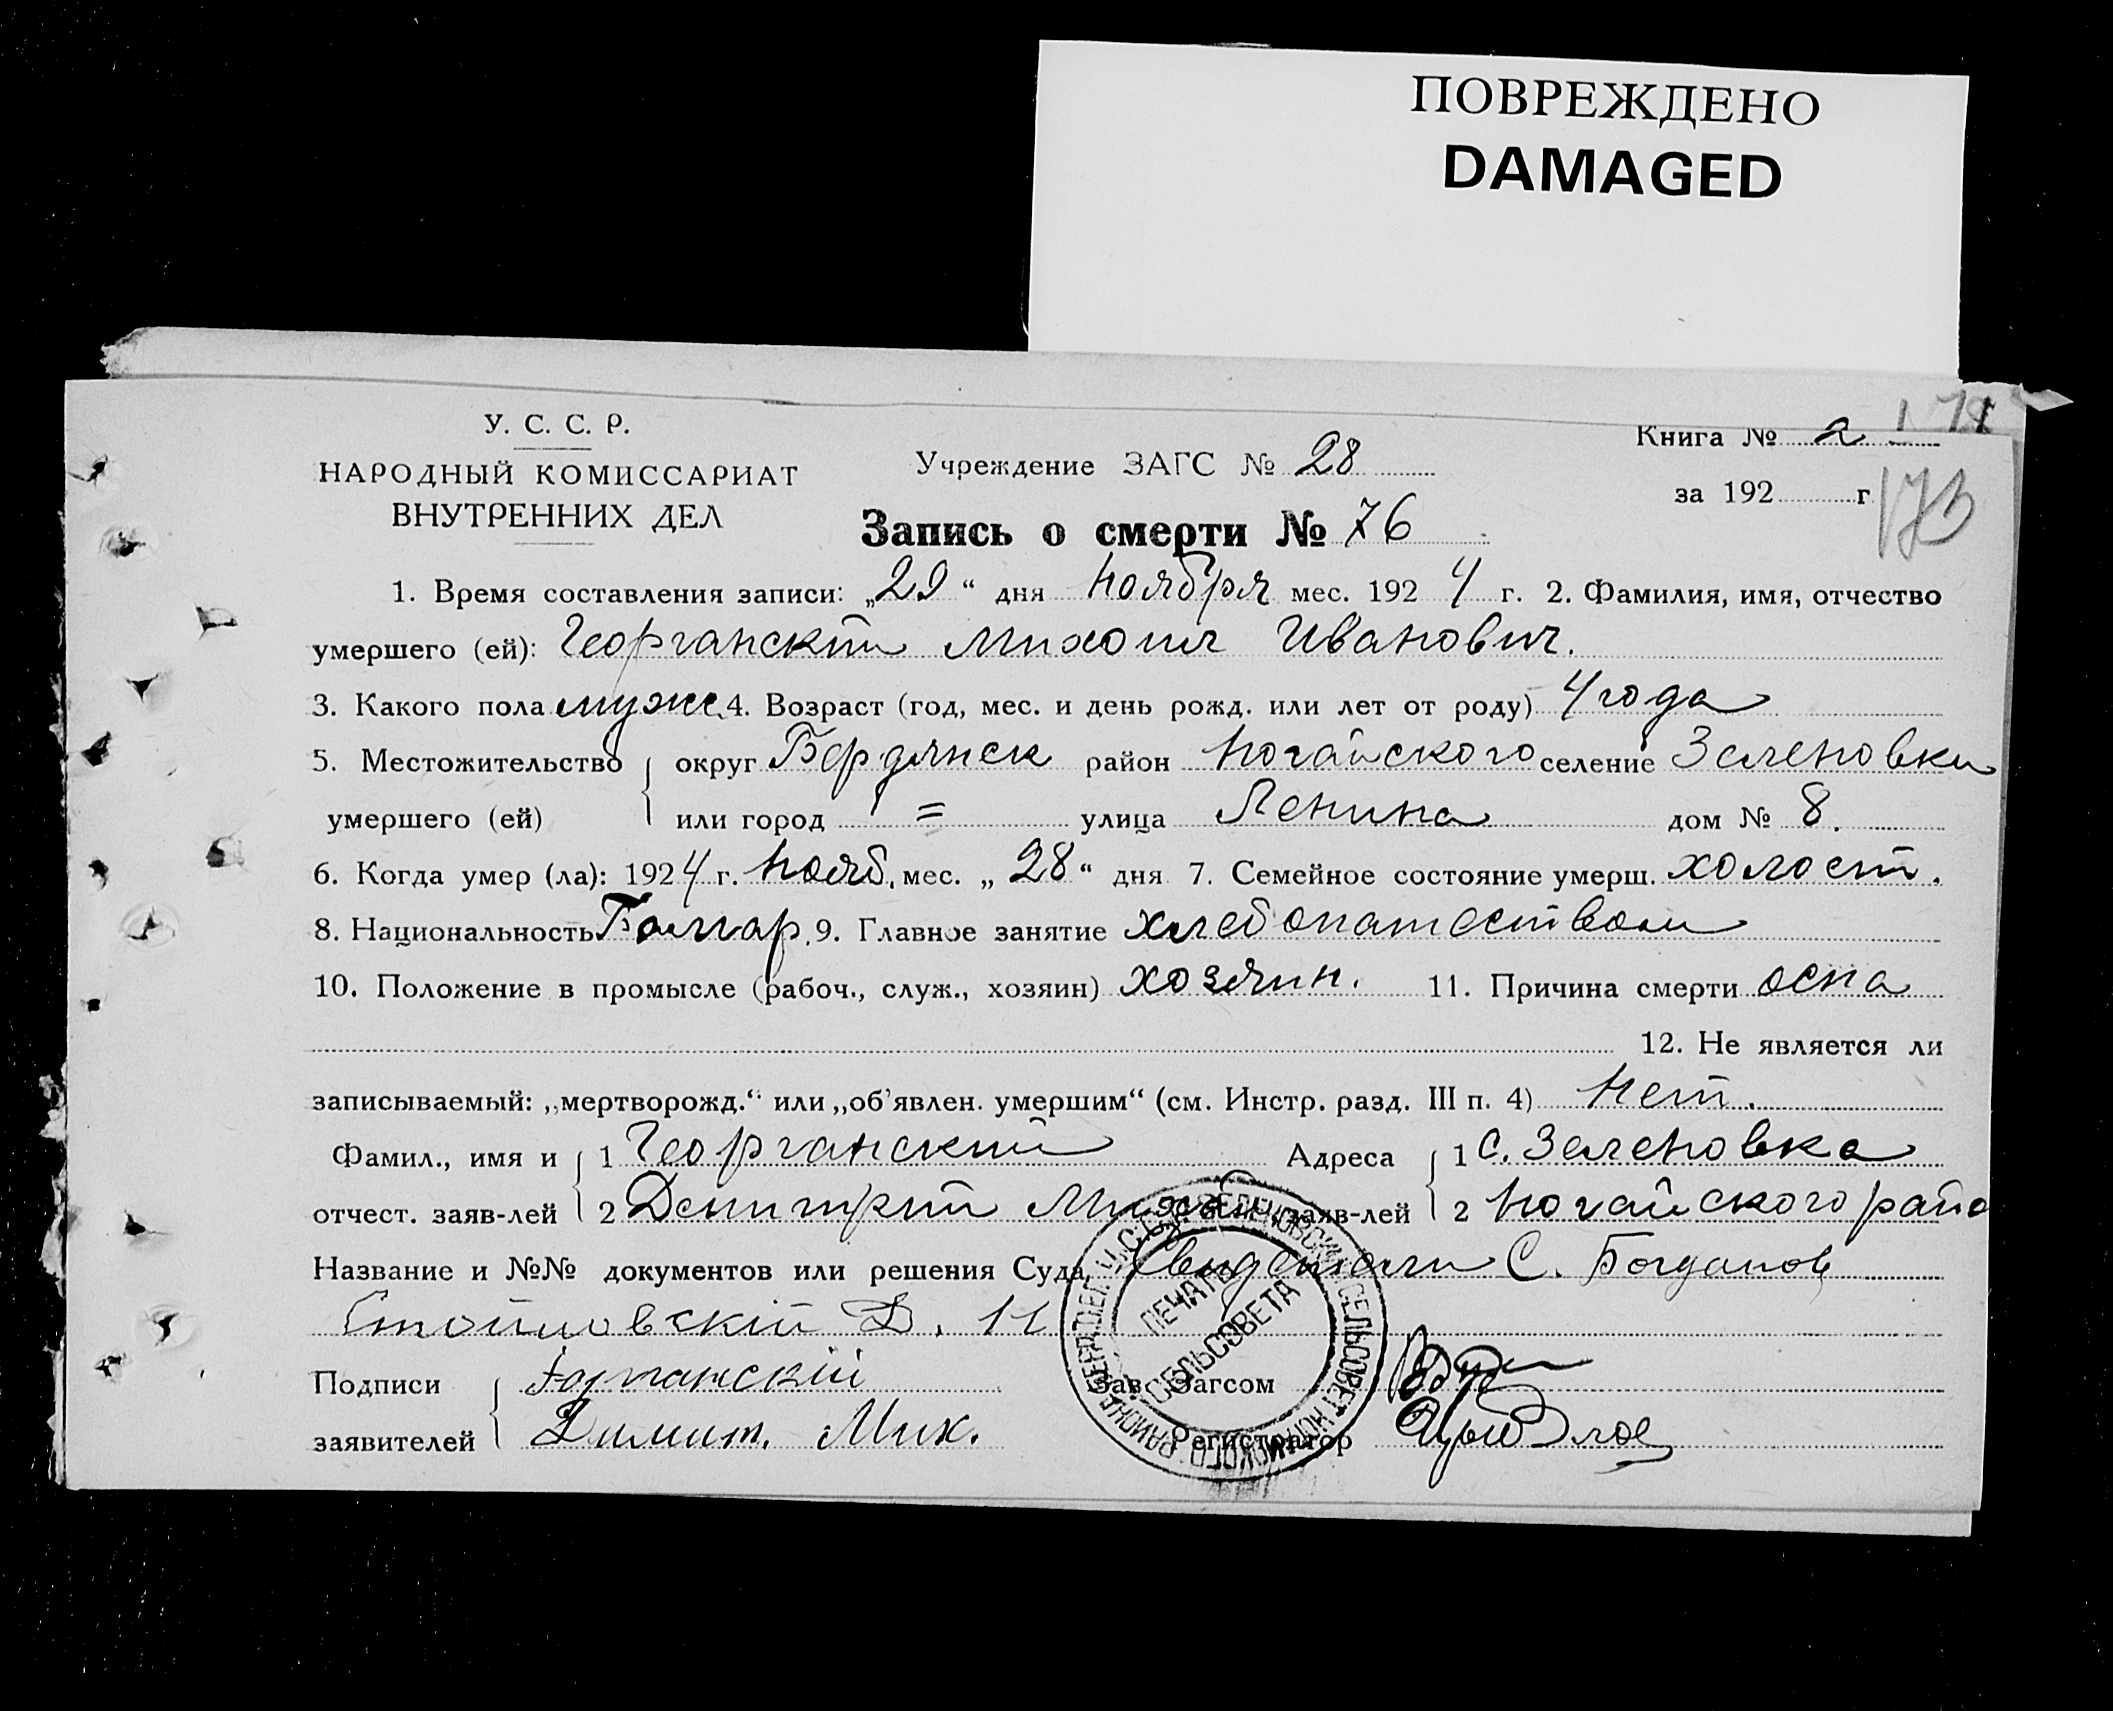 ПОВРЕЖДЕНО
DAMAGED
У. С. С. Р.
НАРОДНЫЙ КОМИССАРИАТ
ВНУТРЕННИХ ДЕЛ
Учреждение ЗАГС № 28
Книга № 2
за 192 г
173
Запись о смерти № 76
1. Время составления записи: „29“ дня ноября мес. 1924 г. 2. Фамилия, имя, отчество
умершего (ей): Георганский Михоил Иванович.
3. Какого пола мужс. 4. Возраст (год, мес. и день рожд. или лет от роду) 4 года
5. Местожительство округ Бердянск район Ногайского селение Зеленовки
умершего (ей) или город = улица Ленина дом № 8.
6. Когда умер (ла): 1924 г. нояб. мес. „28“ дня 7. Семейное состояние умерш. холост.
8. Национальность Болгар. 9. Главное занятие хлебопашеством
10. Положение в промысле (рабоч., служ., хозяин) хозяин. 11. Причина смерти оспа
12. Не является ли
записываемый: „мертворожд.“ или „об'явлен. умершим“ (см. Инстр. разд. III п. 4) Нет.
Фамил., имя и 1 Георганский Адреса 1 С. Зеленовка
отчест. заяв-лей 2 Демитрий заяв-лей 2 Ногайского райо
Название и №№ документов или решения Суда Свидетели С. Богданов
Стойловскій Д. И
Подписи Зав. Загсом
заявителей Димит. Мих. Регистратор
ПЕЧАТЬ СЕЛЬСОВЕТА